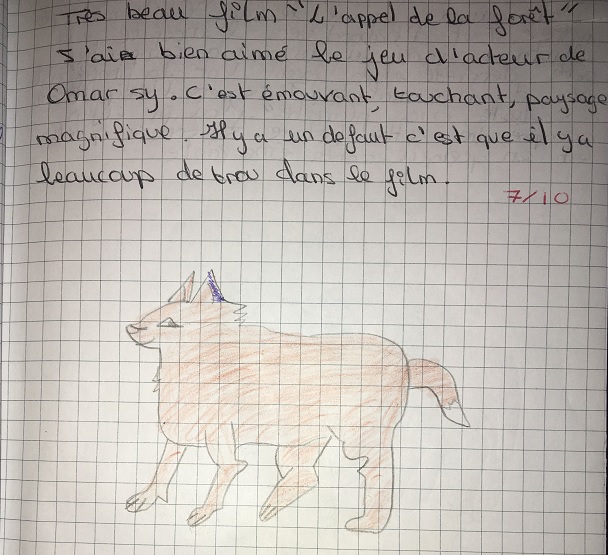 Très beau film "L'appel de la forêt"
J'ai bien aimé le jeu d'acteur de
Omar sy. c'est émouvant, touchant, paysage
magnifique. Il y a un defaut c'est que il y a
beaucoup de trou dans le film.
7/10